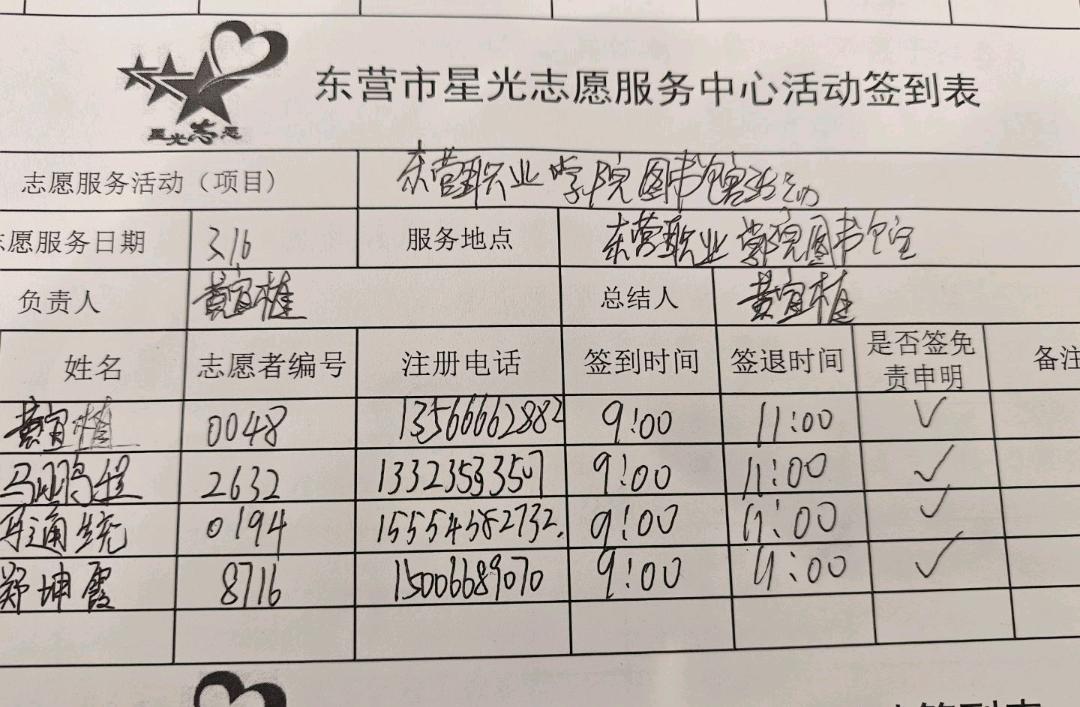 星光志愿
东营市星光志愿服务中心活动签到表
志愿服务活动（项目） 东营职业学院图书馆活动
志愿服务日期 3.16 服务地点 东营职业学院图书馆
负责人 黄宜植 总结人 黄宜植
姓名 志愿者编号 注册电话 签到时间 签退时间 是否签免责申明 备注
黄宜植 0048 13566662882 9:00 11:00 ✓
马鹏程 2632 13323593507 9:00 11:00 ✓
通统 0194 15554582732. 9:00 11:00 ✓
郑坤霞 8716 15006689070 9:00 11:00 ✓